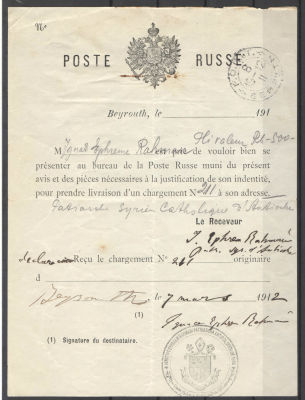 №
POSTE RUSSE
Beyrouth, le 191
M Ignac Ephreme Rahmani est prié de vouloir bien se
présenter au bureau de la Poste Russe muni du présent
avis et des pièces nécessaires à la justification de son indentité,
pour prendre livraison d'un chargement N° 211 à son adresse.
Patriarche Syrien Catholique d'Antioche
Le Receveur
Reçu le chargement N° originaire
d
Beyrouth le 7 mars 1912
(1)
Ignace Ephrem Rahmani
(1) Signature du destinataire.